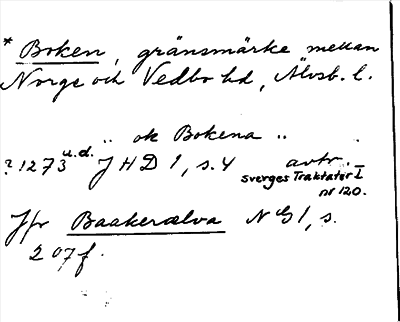 * Boken, gränsmärke mellan
Norge och Vedbo hd, Älvsb. l.
„ ok Bokena „
? 1273 u.d. JHD 1, s. 4 avtr.
Sverges Traktater I
nr 120.
Jfr Baakerælva NG 1, s.
207 f.